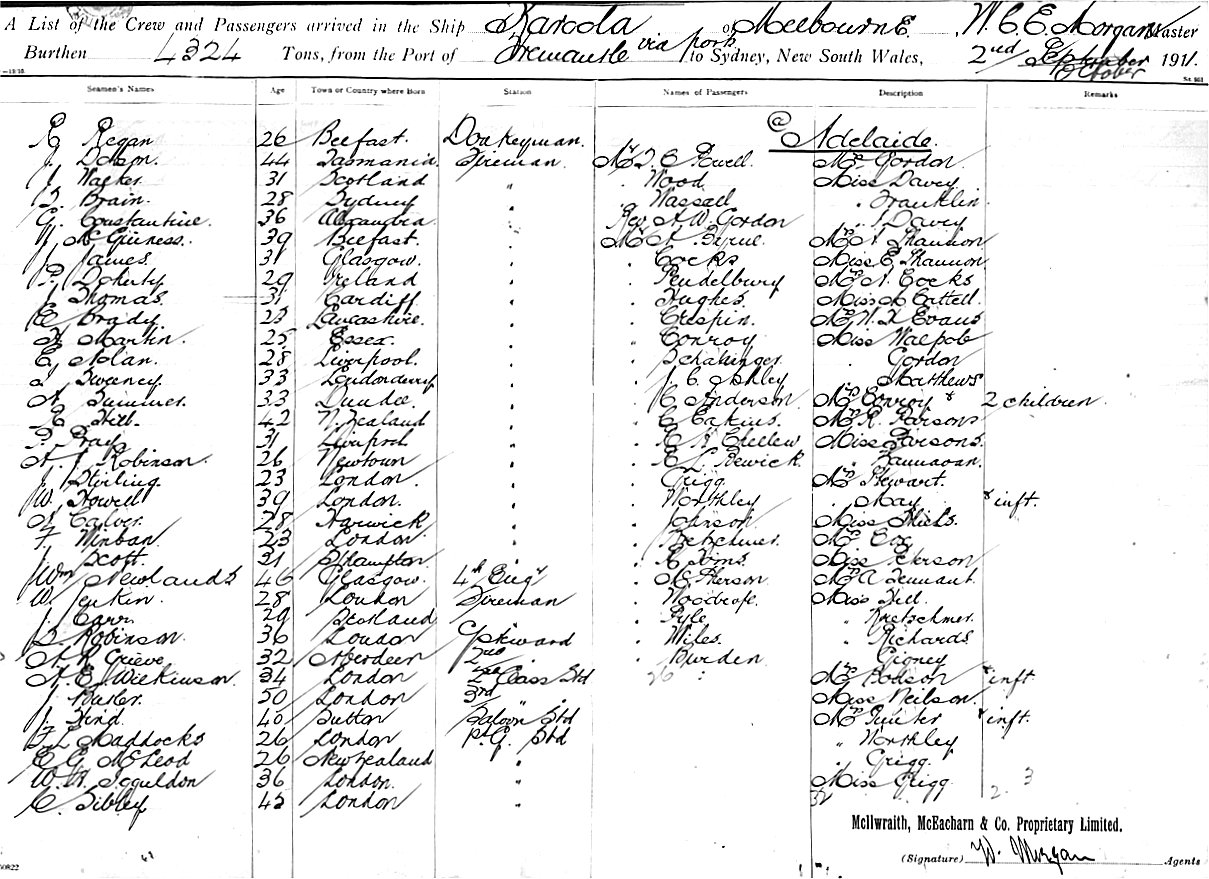 A List of the Crew and Passengers arrived in the Ship Karoola of Melbourne W. C. E. Morgan Master
Burthen 4324 Tons, from the Port of Fremantle via ports to Sydney, New South Wales, 2nd October 1911.
Seamen's Names Age Town or Country where Born Station Names of Passengers Description Remarks
@ Adelaide.
Regan 26 Belfast. Donkeyman.
J. Dobson 44 Tasmania. Fireman Mr T. C. Powell. Mrs Gordon
J. Walker. 31 Scotland " . Wood Miss Davey
Brain. 28 Sydney " . Wassall . Franklin
G. Constantine. 36 Alexandria " Rev. A. W. Gordon " J Davey
J. McGuiness. 39 Belfast. " Mr A. Byrne. Mrs A Shannon
J. James. 31 Glasgow. " . Cocks Miss E. Shannon
P. Doherty 29 Ireland " . Pendelbury Mrs A. Cocks
J Thomas. 31 Cardiff " . Hughes. Miss A Cattell.
E Brady. 23 Lancashire. " . Crespin. Mrs W. F. Evans
Martin. 25 Essex. " " Conroy Miss Walpole
E. Nolan. 28 Liverpool. " . Gordon
Sweeney. 33 Londonderry " . J. C. Ashley . Matthews
A. Summer. 33 Dundee. " . C Anderson Mrs Conroy & 2 children
Hill. 42 N. Zealand " . C Eakins. Mrs R. Parsons
P. Bray 31 Liverpool " . Miss Parsons.
A. J. Robinson. 26 Newtown " . L. Rewick.
J Stirling. 23 London. " . Grigg. Mrs Stewart.
W. Howell 39 London. " . Worthley . May & inft.
A. Calver. 28 Harwick " . Johnson Miss Hicks.
F Winban 23 London " . Kretschmer. Mrs Cox
J Scott. 31 S'hampton " . Sims. Miss
Wm Newlands 46 Glasgow. 4th Engr . McPherson Mrs A Tennant.
W. Jenkin. 28 London Fireman . Woodrofe. Miss Hill.
J. Carr. 29 Scotland " . Pyle " Kretschmer.
Robinson. 36 London C/Steward . Wiles. " Richards
A. R Grieve 32 Aberdeen 2nd " . Burden . Gigney
A. E. Wilkinson. 34 London 2nd Class Std 26 Mrs Dobson & inft
J Butler. 50 London 3rd " " Miss Neilson.
J. Hind. 40 Sutton Saloon Std Mrs & inft.
F. L Maddocks 26 London P.G. Std " Worthley
E. G. McLeod 26 New Zealand " . Grigg.
W. H. 36 London. " Miss Grigg 2. 3
C. Sibley 42 London " 32
McIlwraith, McEacharn & Co. Proprietary Limited.
(Signature) W. Morgan Agents